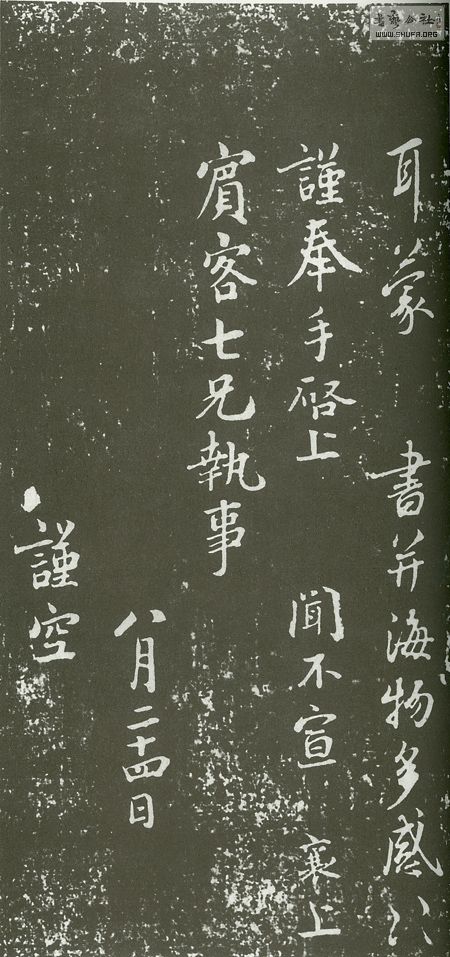 耳蒙 書并海物多感〻
謹奉手啓上 聞不宣 襄上
賓客七兄執事
八月二十四日
謹空
書法公社
WWW.SHUFA.ORG